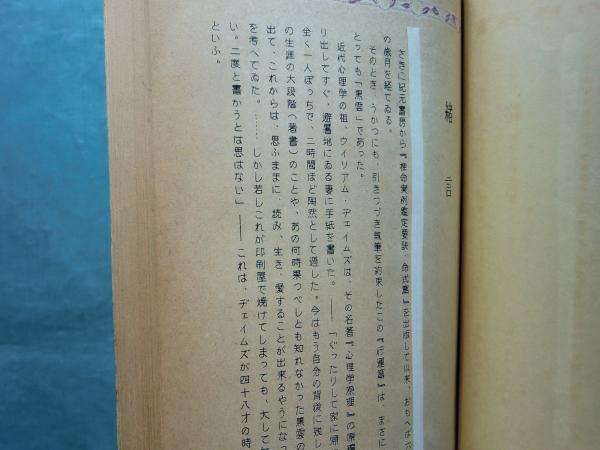 緒言
さきに紀元書房から『推命実例鑑定要訣・命式篇』を出版して以来、おもへば六
の歳月を経てゐる。
そのとき、うかつにも、引きつづき執筆を約束したこの『行運篇』は、まさに
とっても「黒雲」であった。
近代心理学の祖、ウイリアム・ヂェイムズは、その名著『心理学原理』の原
り出してすぐ、避暑地にゐる妻に手紙を書いた。――「ぐったりして家に帰
全く一人ぼっちで、二時間ほど陶然として過した。今はもう自分の背後に残し
の生涯の大段階（著書）のことや、あの何時果つべしとも知れなかった黒雲の
出て、これからは、思ふままに、読み、生き、愛することが出来るやうになっ
を考へてゐた。……しかし若しこれが印刷屋で焼けてしまっても、大して
い。二度と書かうとは思はない」――これは、ヂェイムズが四十八才の時
といふ。